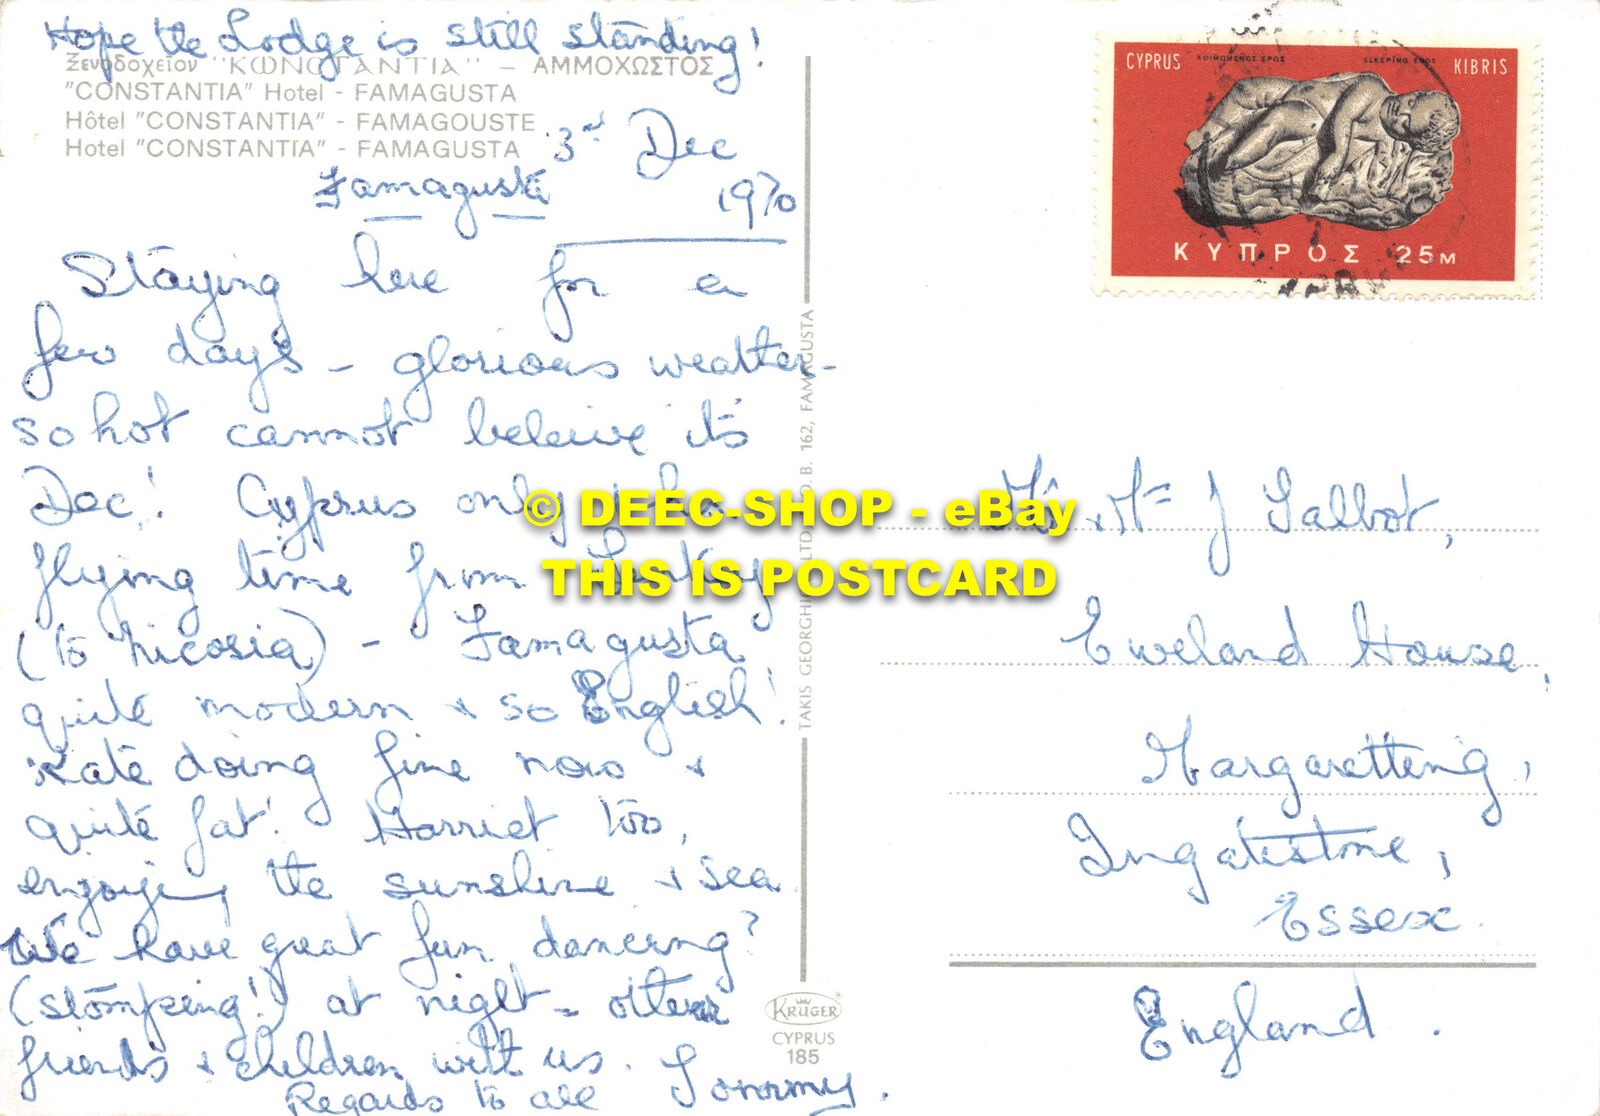 Hope the Lodge is still standing!
Ξενοδοχεῖον "ΚΩΝCΤΑΝΤΙΑ" - ΑΜΜΟΧΩΣΤΟΣ
"CONSTANTIA" Hotel - FAMAGUSTA
Hôtel "CONSTANTIA" - FAMAGOUSTE
Hotel "CONSTANTIA" - FAMAGUSTA
3rd Dec
Famagusta 1970
Staying here for a
few days - glorious weather -
so hot cannot beleive its
Dec! Cyprus only
flying time from
(to Nicosia) - Famagusta
quite modern + so English!
Kate doing fine now +
quite fat! Harriet too,
enjoying the sunshine + sea
We have great fun dancing?
(stomping!) at night - other
friends + children with us. Tommy.
Regards to all
TAKIS GEORGHI LTD. O.B. 162, FAMAGUSTA
KRÜGER
CYPRUS
185
CYPRUS ΚΟΙΜΩΜΕΝΟΣ ΕΡΩΣ SLEEPING EROS KIBRIS
ΚΥΠΡΟΣ 25M
Mr + Mrs J Talbot,
Eweland House,
Margaretting,
Ingatestone,
Essex.
England.
© DEEC-SHOP - eBay
THIS IS POSTCARD